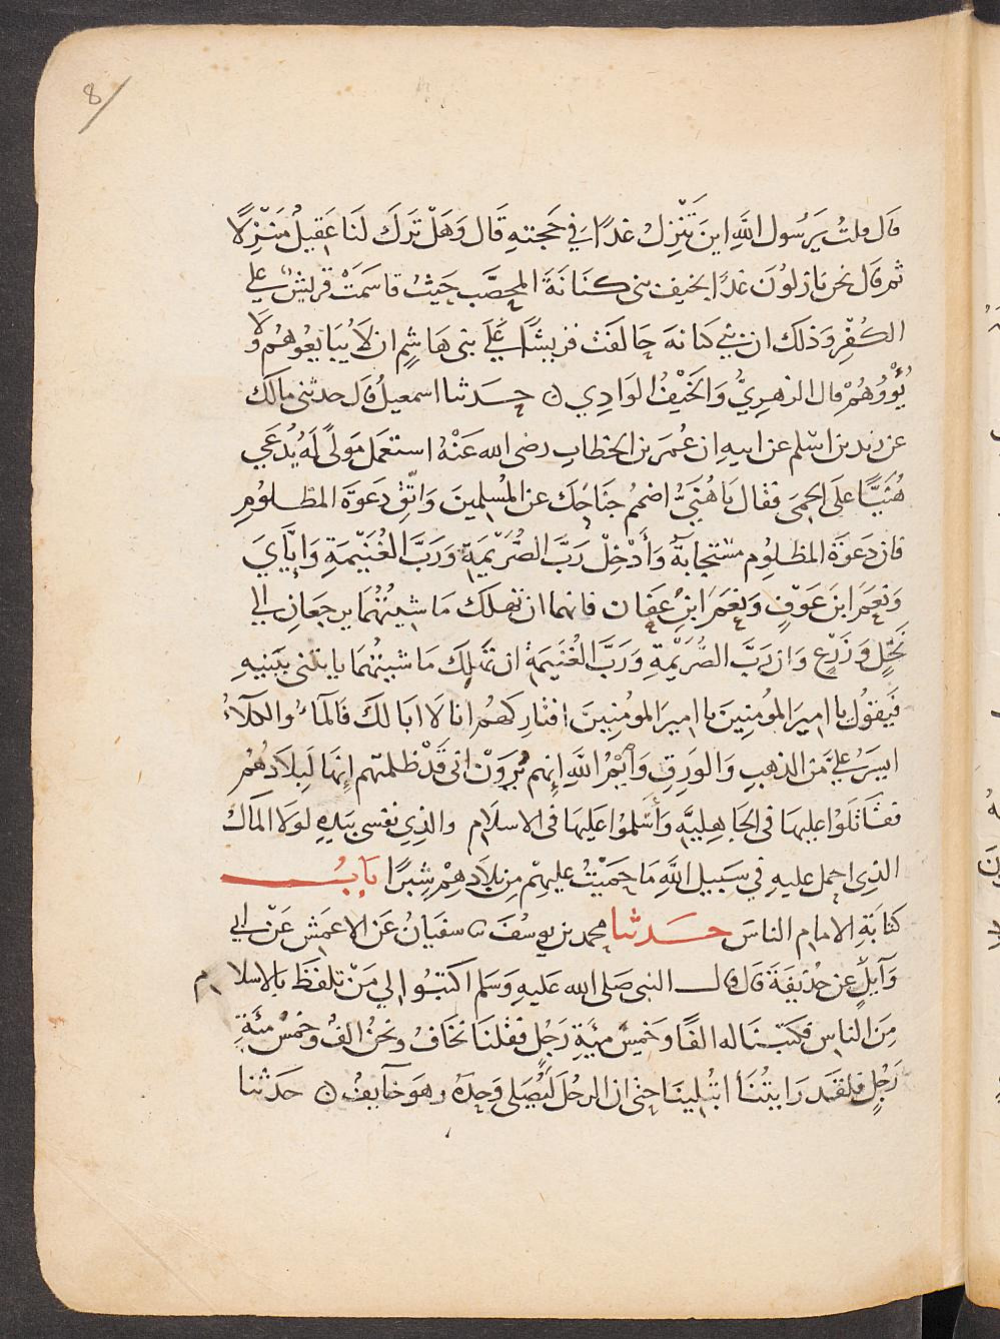 8
قال قلتُ يَرَسُول اللَّهِ اين تَنْزِلُ غدًا في حَجتهِ قَال وَهَلْ تَرَكَ لَنَا عَقِيلُ مَنْزِلًا
ثم قال نحن نازلوُنَ غدًا بخيف بنى كنَانَةَ المحصَّب حَيثُ قاسَمَتْ قريشٌ علي
الكُفْرِ وَذلك ان بني كنانه حَالَفَتْ قريشًا علَي بنى هَاشمٍ ان لاَ يُبَايعُوهُم وَلَا
يُؤْوُوهُمْ قال الزهرِيُّ وَالخَيْفُ الوَادِي ن حَدثنا اسمعيلُ قال حدثنى مالك
عن زيد بن اسْلم عن ابيهِ ان عُمَر بن الخطابِ رضى الله عَنْهُ استعمَل مَولىً لَهُ يُدعَي
هُنَيًّا على الحِمَى فقال يَا هُنَيُّ اضمُم جَنَاحَكَ عن المُسلِمينَ وَاتَّقِ دَعوَةَ المظلوُمِ
فان دَعوَةَ المظلوُم مسْتجابَةٌ وَأَدْخِلْ رَبَّ الصُّرَيْمَةِ وَرَبَّ الغُنَيْمَةِ وَإيَّايَ
وَنَعَمَ ابنِ عَوفٍ وَنعَمَ ابنِ عَفان فانهما ان تهلك مَاشيتُهُمَا يرجعَان الي
نَخْلٍ وَزَرْعٍ وَان رَبَّ الصُّرَيْمَةِ وَرَبَّ الغُنَيمَةِ ان تَهْلِكَ مَاشيتُهُمَا ياتنى ببَنيهِ
فيَقوُل يا اميرَ المومِنِينَ يا اميرَ المومِنِينَ افتارِكهُم انا لا ابَا لكَ فَالماءُ والكلاءُ
ايسَرُ عليَّ مَن الذهبِ وَالوَرِقِ وَأيْمُ اللَّهِ إنهم يُرَوْنَ انى قَدْ ظلمتهم إنهَا لَبِلاَدُهُمْ
فقَاتلوُا عليهَا في الجَاهِليَّهِ وَأسْلموُا عَلَيهَا في الاسلامِ والذِي نفسى بيَدِهِ لولَا المَالُ
الذِى احمل عليهِ في سَبيل اللَّهِ مَا حَمَيْتُ عليهِمْ مِن بلاَدِهِمْ شِبرًا بَابُ
كتابَةِ الامام الناسَ حَدثنا محمد بن يوسُفَ ثنا سفيَانُ عَن الاعمَشِ عَنْ ابي
وَآيلٍ عن حُذَيفَةَ قَال قال النبى صَلى الله عَليهِ وَسَلم اكتبُوا لي مَنْ تلفظَ بالاسلام
مِنَ الناسِ فكتَبنَا له الفًا وَخمسَ مِيَّةِ رَجُلٍ فقلنَا نخَافُ ونحنُ الفٌ وخمسُ مئَةِ
رَجُلٍ فلقَد رَايتُنَا ابتُلِينَا حتى ان الرجُلَ لَيُصَلى وَحدَهُ وهوَ خآيفٌ ن حَدثنا